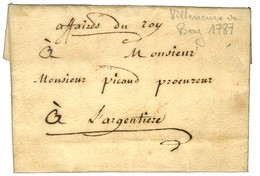 affaires du roy
Villeneuve de
Berg 1787
à Monsieur
Monsieur picaud procureur
à Largentiere